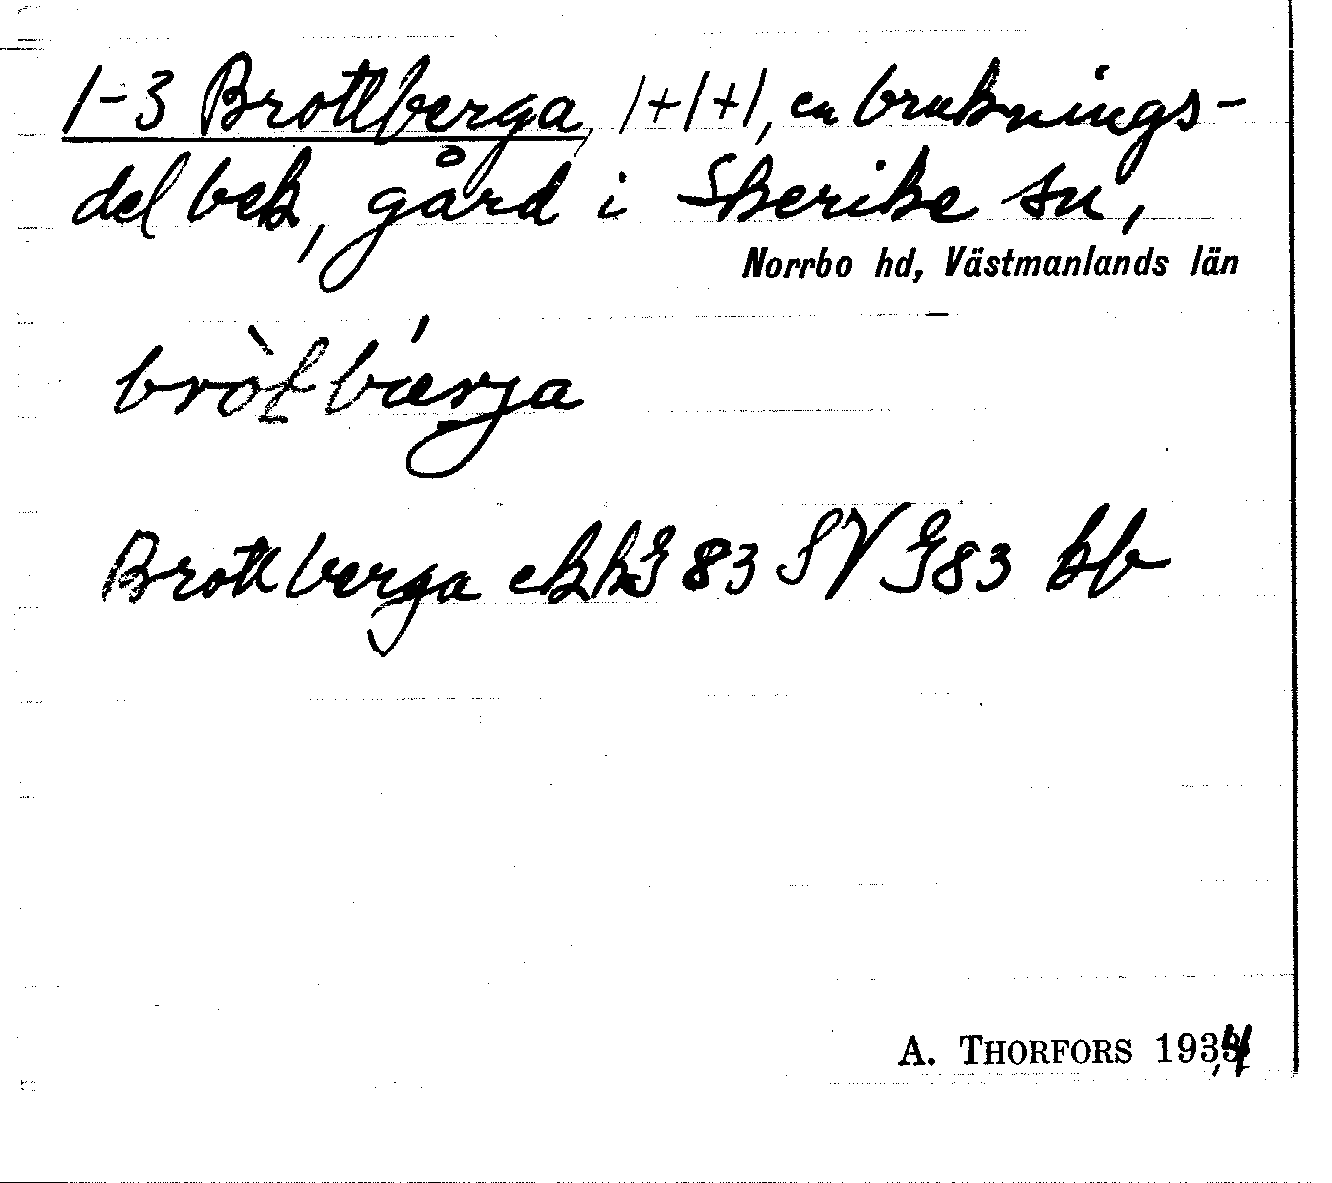 1-3 Brottberga, 1+1+1, en bruknings-
del bek, gård i Skerike sn,
Norrbo hd, Västmanlands län
bròtbǽrja
Brottberga ekk G 83 SV G83 kb
A. THORFORS 1934